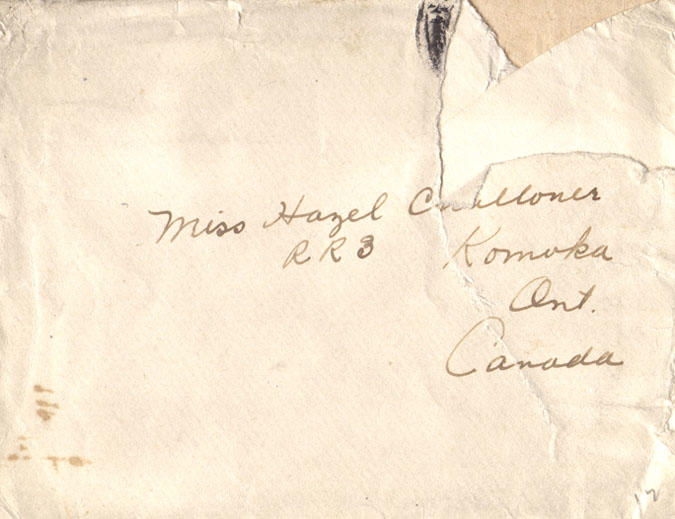 Miss Hazel
RR3 Komoka
Ont.
Canada